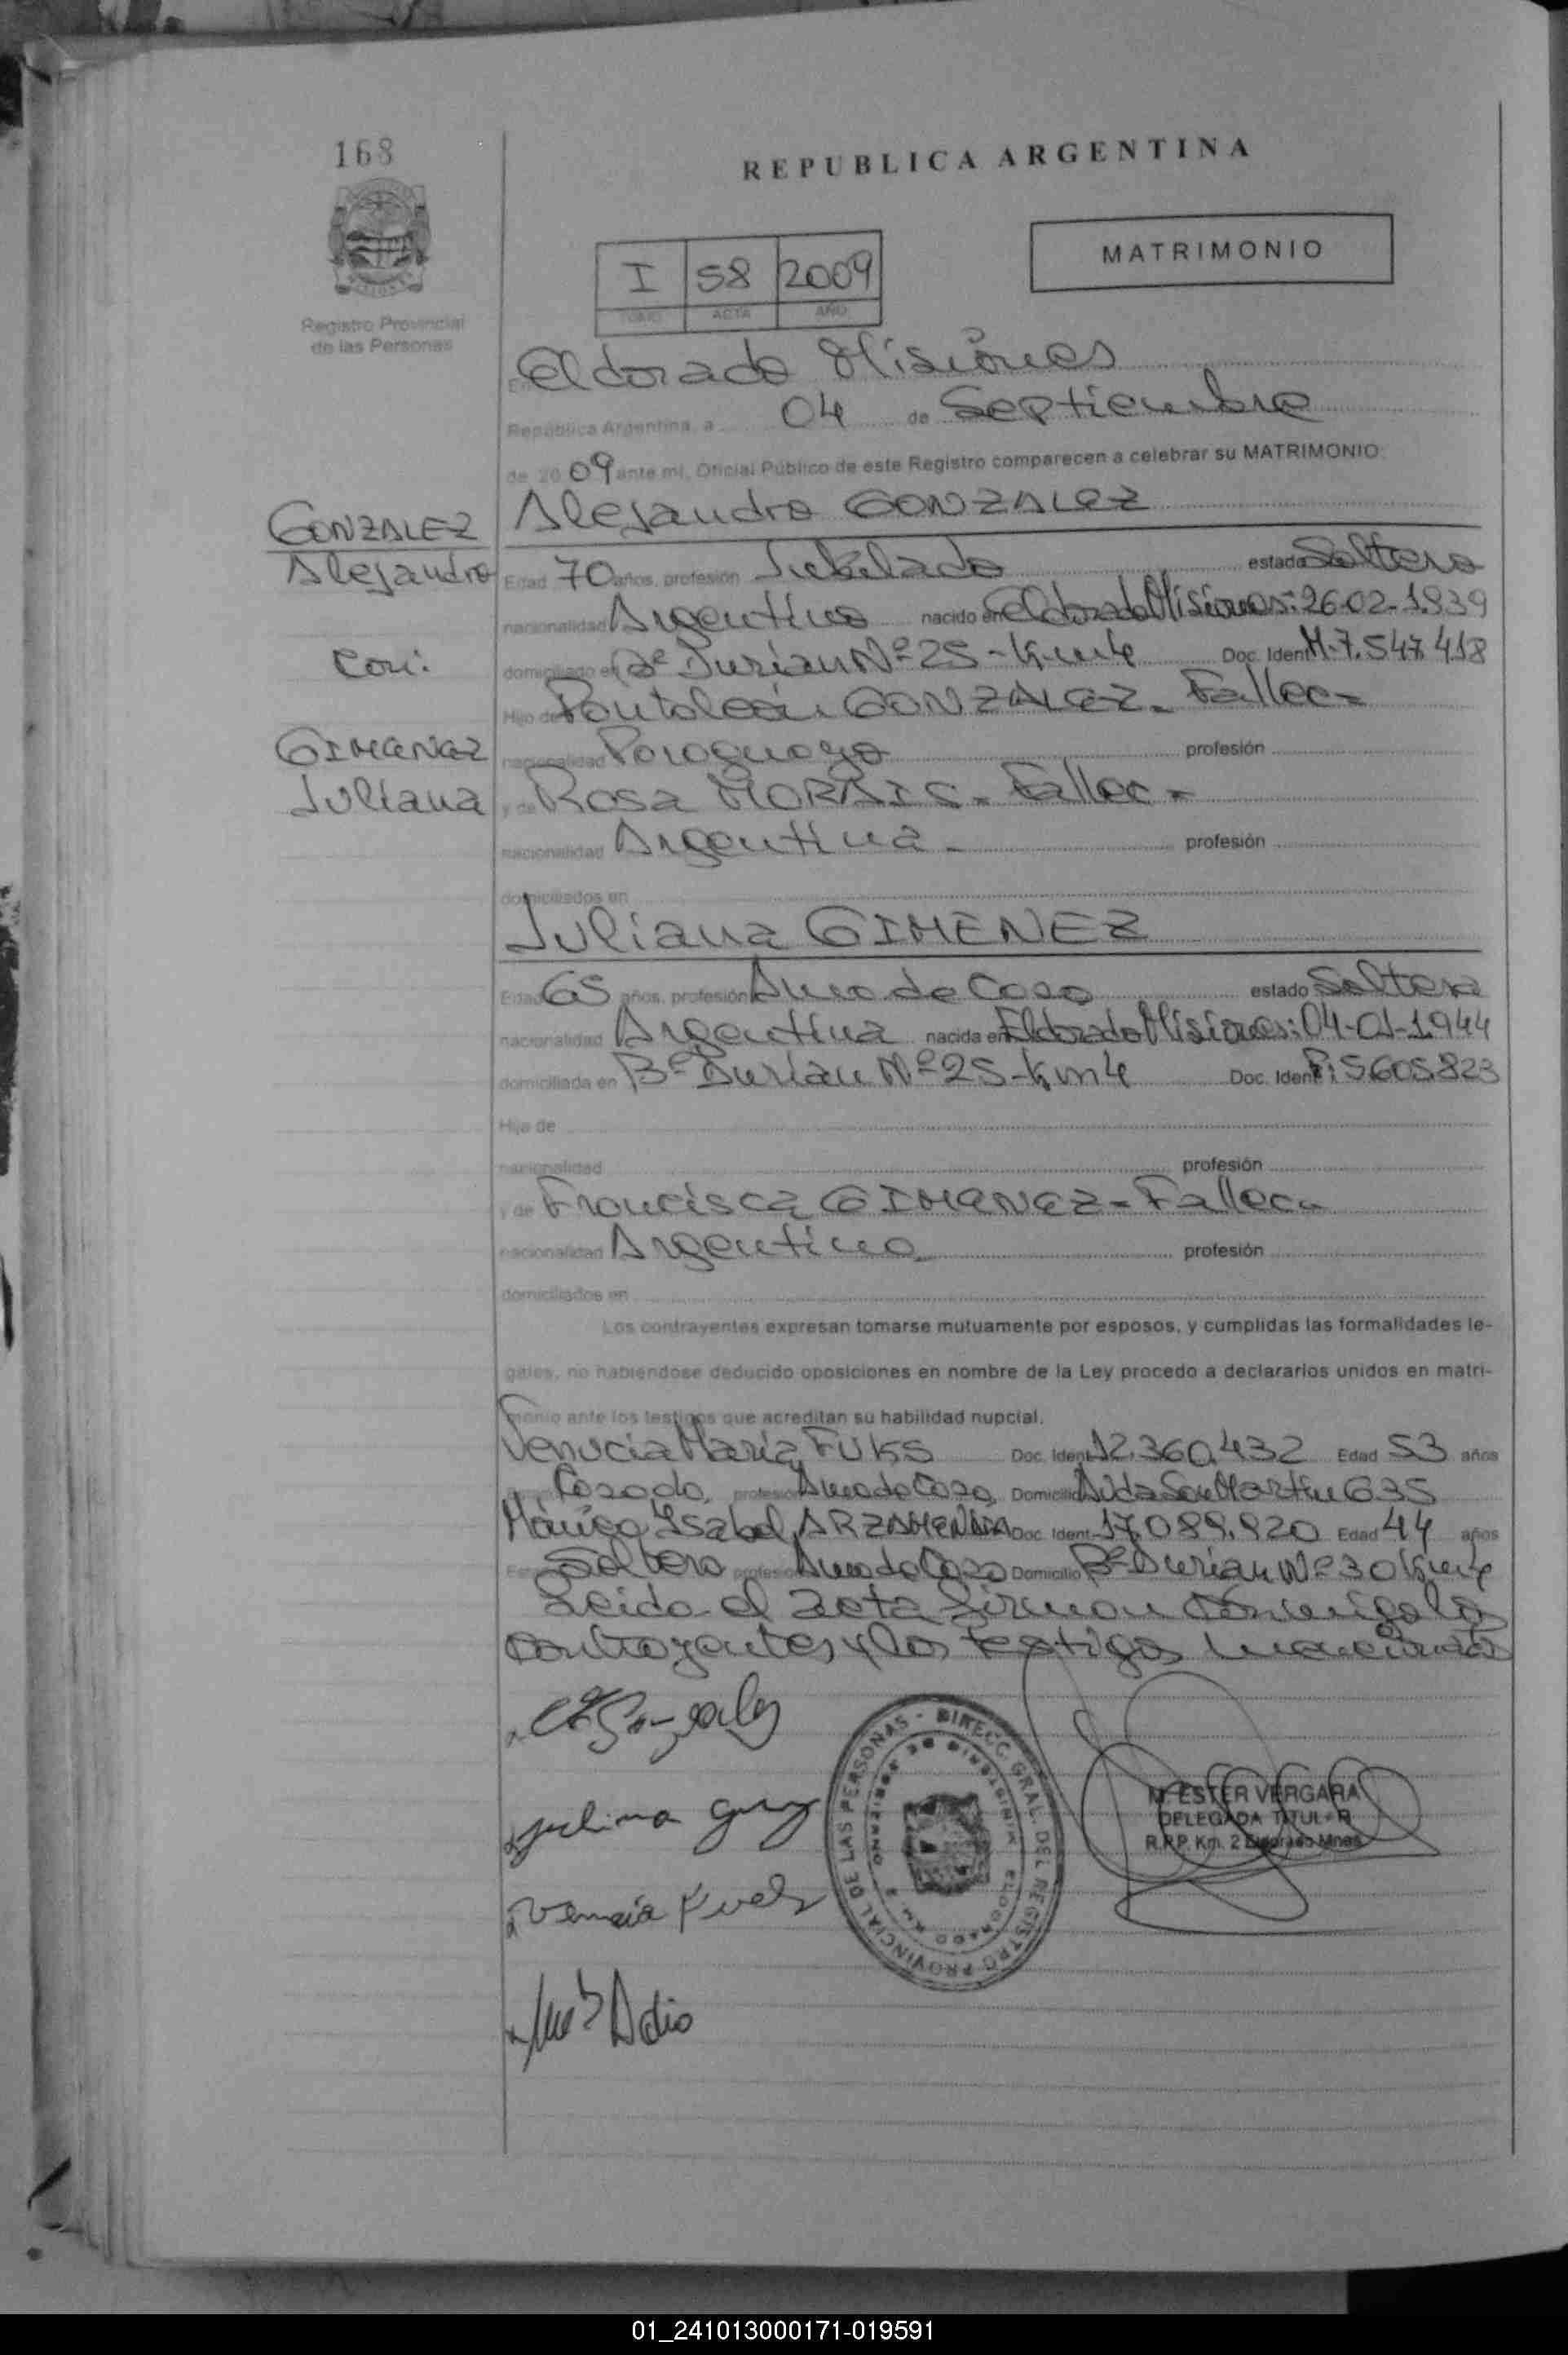 168
REPUBLICA ARGENTINA
MATRIMONIO
I 58 2009
TOMO ACTA AÑO
Registro Provincial
de las Personas
En Eldorado Misiones
República Argentina, a 04 de Septiembre
de 20 09 ante mi, Oficial Público de este Registro comparecen a celebrar su MATRIMONIO:
GONZALEZ
Alejandro
Con:
GIMENEZ
Juliana
Alejandro GONZALEZ
Edad 70 años, profesión Jubilado estado Soltero
nacionalidad Argentino nacido en Eldorado Misiones: 26-02-1.939
domiciliado en Bº Durian Nº 25 - Km 4 Doc. Ident. M.7.547.418
Hijo de Pantaleón GONZALEZ - Fallec -
nacionalidad Paraguayo profesión
y de Rosa MORAIS - Fallec -
nacionalidad Argentina - profesión
domiciliados en
Juliana GIMENEZ
Edad 65 años, profesión Ama de Casa estado Soltera
nacionalidad Argentina nacida en Eldorado Misiones: 04-01-1.944
domiciliada en Bº Durian Nº 25 - Km 4 Doc. Ident. F: 5.605.823
Hija de
nacionalidad profesión
y de Francisca GIMENEZ - Fallec -
nacionalidad Argentina profesión
domiciliados en
Los contrayentes expresan tomarse mutuamente por esposos, y cumplidas las formalidades le-
gales, no habiéndose deducido oposiciones en nombre de la Ley procedo a declararlos unidos en matri-
monio ante los testigos que acreditan su habilidad nupcial.
Venucia María FUKS Doc. Ident. 12.360.432 Edad 53 años
Casada, profesión Ama de Casa, Domicilio Avda San Martin 635
Mónica Ysabel ARZAMENDIA Doc. Ident. 17.089.920 Edad 44 años
Soltera profesión Ama de Casa Domicilio Bº Durian Nº 30 Km 4
Leida el acta firman conmigo los
contrayentes y los testigos mencionados
DIRECC. GRAL. DEL REGISTRO PROVINCIAL DE LAS PERSONAS -
ELDORADO KM 2
M. ESTER VERGARA
DELEGADA TITULAR
R.P.P. Km. 2 Eldorado Mnes.
01_241013000171-019591